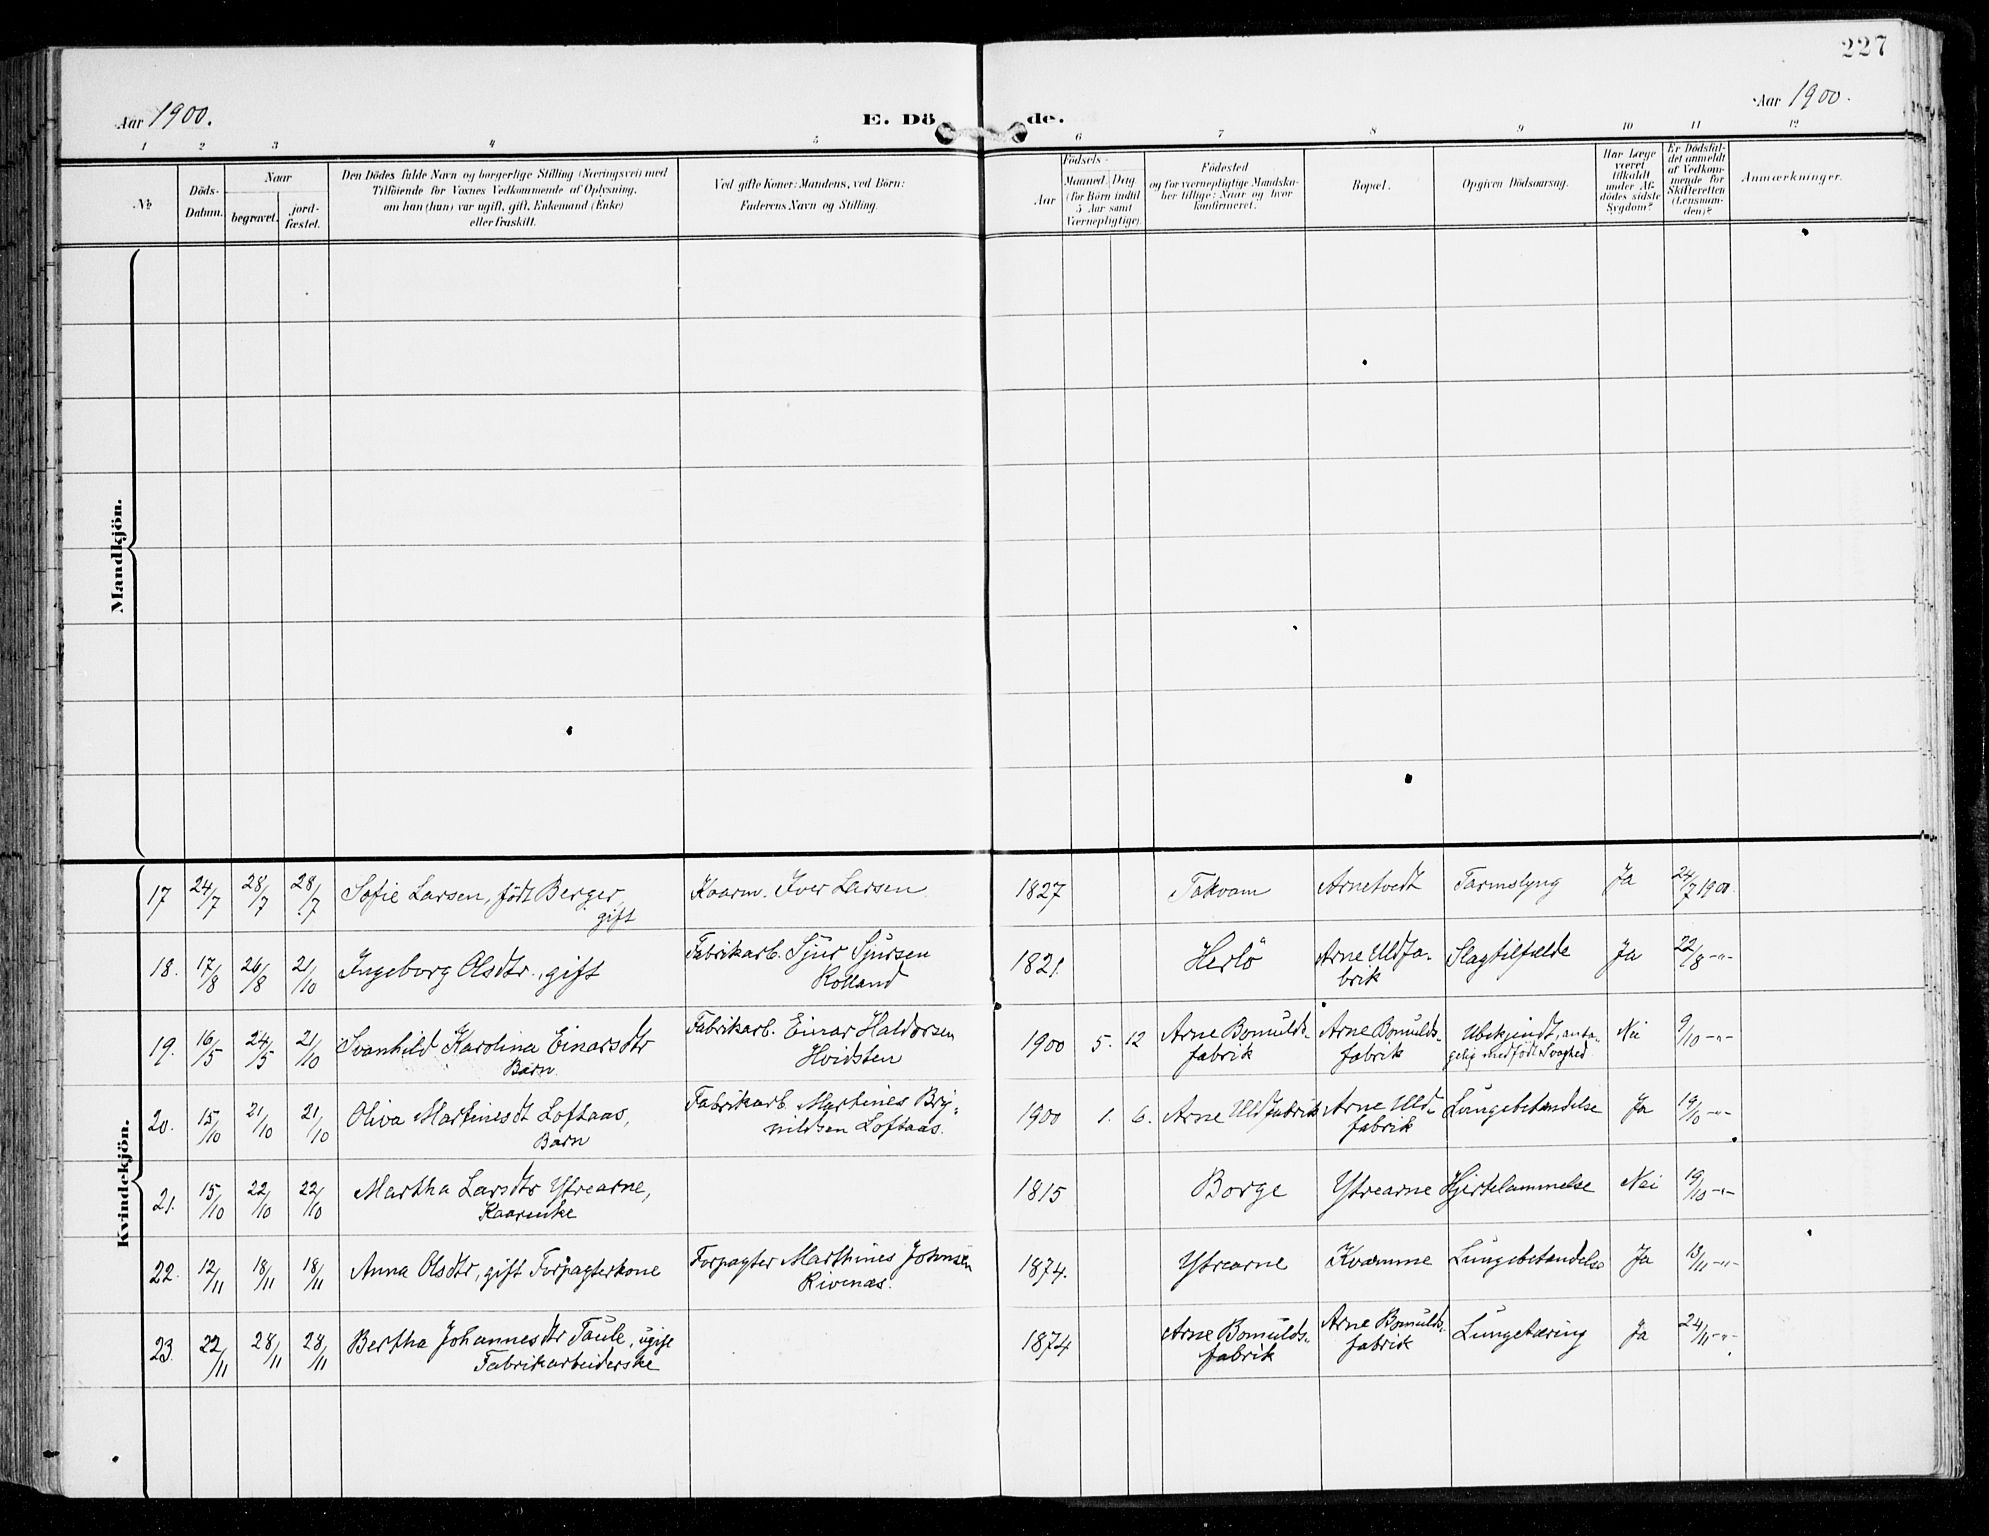 227
Aar 1900.
E. Döde.
Aar 1900.
1 2 3 4 5 6 7 8 9 10 11 12
No
Döds-Datum.
Naar
begravet.
jordfæstet.
Den Dödes fulde Navn og borgerlige Stilling (Næringsvei) med
Tilföiende for Voxnes Vedkommende af Oplysning,
om han (hun) var ugift, gift, Enkemand (Enke)
eller fraskilt.
Ved gifte Koner: Mandens, ved Börn:
Faderens Navn og Stilling.
Födsels-
Aar
Maaned Dag
(for Börn indtil
5 Aar samt
Værnepligtige)
Födested
og for værnepligtige Mandskaber
tillige: Naar og hvor
konfirmeret.
Bopæl.
Opgiven Dödsaarsag.
Har Læge
været
tilkaldt
under Afdödes
sidste
Sygdom?
Er Dödsfaldet
anmeldt
af Vedkommende
for
Skifteretten
(Lensmanden)?
Anmærkninger.
Mandkjön.
Kvindekjön.
17 24/7 28/7 28/7 Sofie Larsen, födt Berger, gift Kaarm. Iver Larsen 1827 Takvam Arnetvedt Tarmslyng Ja 24/7 1900.
18. 17/8 26/8 21/10 Ingeborg Olsdtr., gift Fabrikarb. Sjur Sjursen Rolland 1821. Herlö Arne Uldfabrik Slagtilfælde Ja 22/8 -"-
19. 16/5 24/5 21/10 Svanhild Karolina Einarsdtr Barn. Fabrikarb. Einar Haldorsen Hvidsten 1900 5. 12 Arne Bomuldsfabrik Arne Bomuldsfabrik Ubekjendt, antagelig medfödt Svaghed Nei 9/10 -"-
20. 15/10 21/10 21/10 Oliva Martinesdt Loftaas, Barn Fabrikarb. Martines Brynildsen Loftaas. 1900 1. 6. Arne Uldfabrik Arne Uldfabrik Lungebetændelse Ja 19/10 -"-
21. 15/10 22/10 22/10 Martha Larsdtr Ytrearne, Kaarenke 1815 Borge Ytrearne Hjertelammelse Nei 19/10 -"-
22. 12/11 18/11 18/11 Anna Olsdtr, gift Forpagterkone Forpagter Marthines Johnsen Rivenæs. 1874. Ytrearne Kvamme Lungebetændelse Ja 13/11 -"-
23. 22/11 28/11 28/11 Bertha Johannesdtr Taule, ugift Fabrikarbeiderske 1874 Arne Bomuldsfabrik Arne Bomuldsfabrik Lungetæring Ja 24/11 -"-